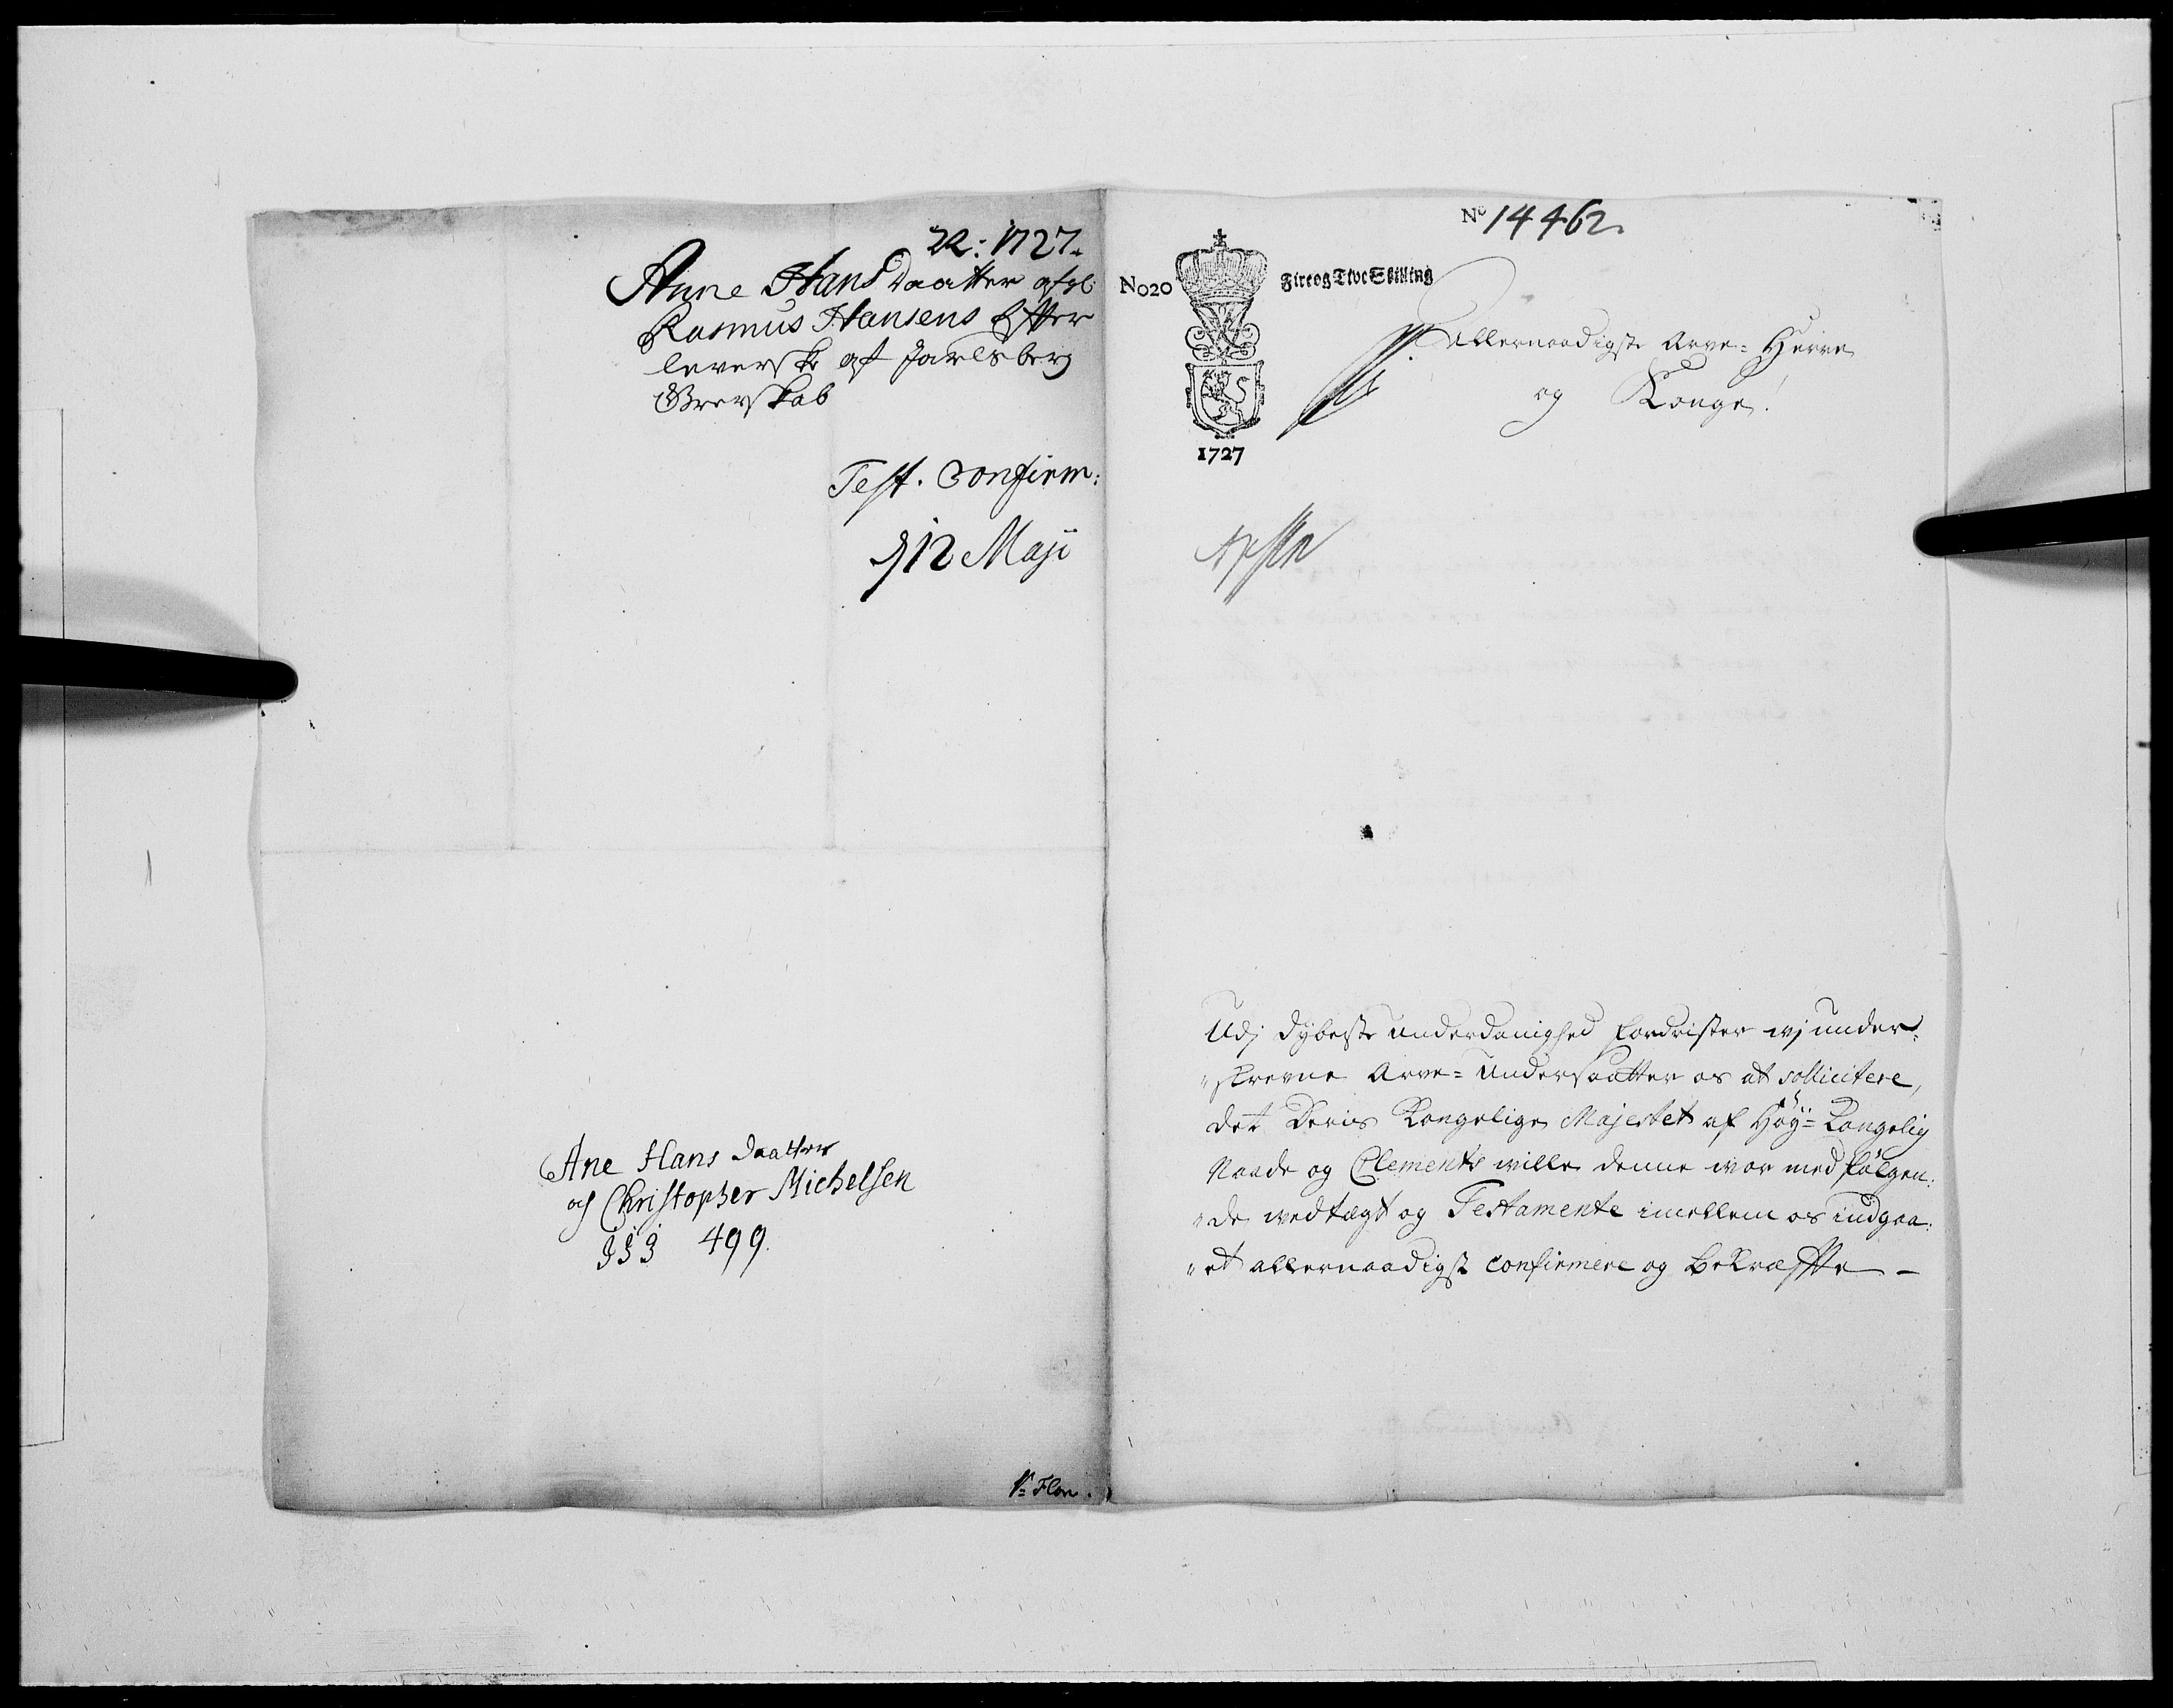 22: 1727.
Anne Hans Daatter afgl:
Rasmus Hansens Efter
leverske af Jarlsberg
Grevskab
Test. Confirm:
d 12 Maji
Ane Hans Daatter
og Christopher Michelsen
499.
No 14462.
No20
Fire og Tive Skilling
1727
Allernaadigste Arve-Herre
og Konge!
Udj dybeste underdanighed fordrister wj under-
skrevne Arve-Undersaatter os at sollicitere,
det Deris Kongelige Majestet af Høy-Kongelig
Naade og Clements wille denne wor med følgen-
de wedtægt og Testamente imellem os indgaa-
et allernaadigst confirmere og bekræffte -